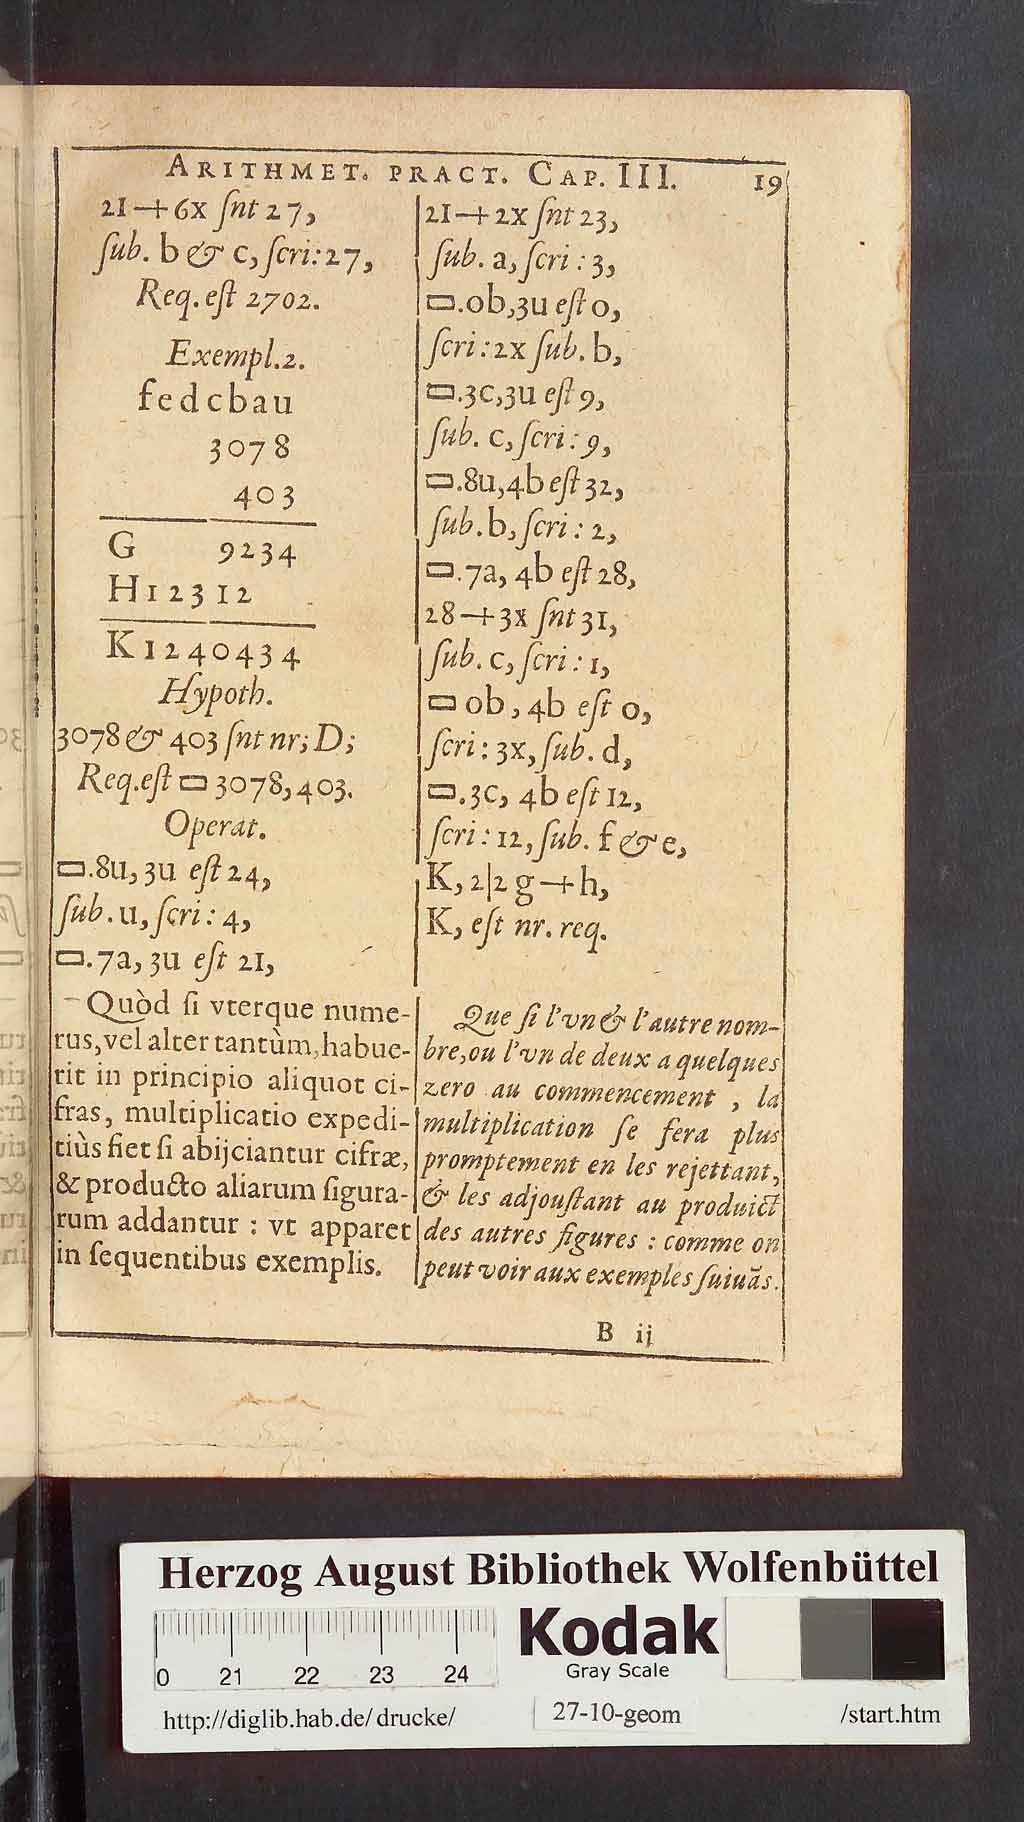 ARITHMET. PRACT. CAP. III. 19
21-+6x ſnt 27,
ſub. b & c, ſcri: 27,
Req. eſt 2702.
Exempl. 2.
fedcbau
3078
403
G 9234
H12312
K1240434
Hypoth.
3078 & 403 ſnt nr; D;
Req. eſt ▭ 3078, 403.
Operat.
▭.8u, 3u eſt 24,
ſub. u, ſcri: 4,
▭. 7a, 3u eſt 21,
21-+2x ſnt 23,
ſub. a, ſcri: 3,
▭.0b,3u eſt 0,
ſcri: 2x ſub. b,
▭.3c,3u eſt 9,
ſub. c, ſcri: 9,
▭.8u,4b eſt 32,
ſub. b, ſcri: 2,
▭. 7a, 4b eſt 28,
28-+3x ſnt 31,
ſub. c, ſcri: 1,
▭ 0b, 4b eſt 0,
ſcri: 3x, ſub. d,
▭. 3c, 4b eſt 12,
ſcri: 12, ſub. f & e,
K, 2|2 g-+h,
K, eſt nr. req.
Quòd ſi vterque nume-
rus, vel alter tantùm, habue-
rit in principio aliquot ci-
fras, multiplicatio expedi-
tiùs fiet ſi abijciantur cifræ,
& producto aliarum figura-
rum addantur : vt apparet
in ſequentibus exemplis.
Que ſi l'vn & l'autre nom-
bre, ou l'vn de deux a quelques
zero au commencement , la
multiplication ſe fera plus
promptement en les rejettant,
& les adjouſtant au produict
des autres figures : comme on
peut voir aux exemples ſuiuãs.
B ij
Herzog August Bibliothek Wolfenbüttel
Kodak
Gray Scale
0 21 22 23 24
http://diglib.hab.de/drucke/ 27-10-geom /start.htm